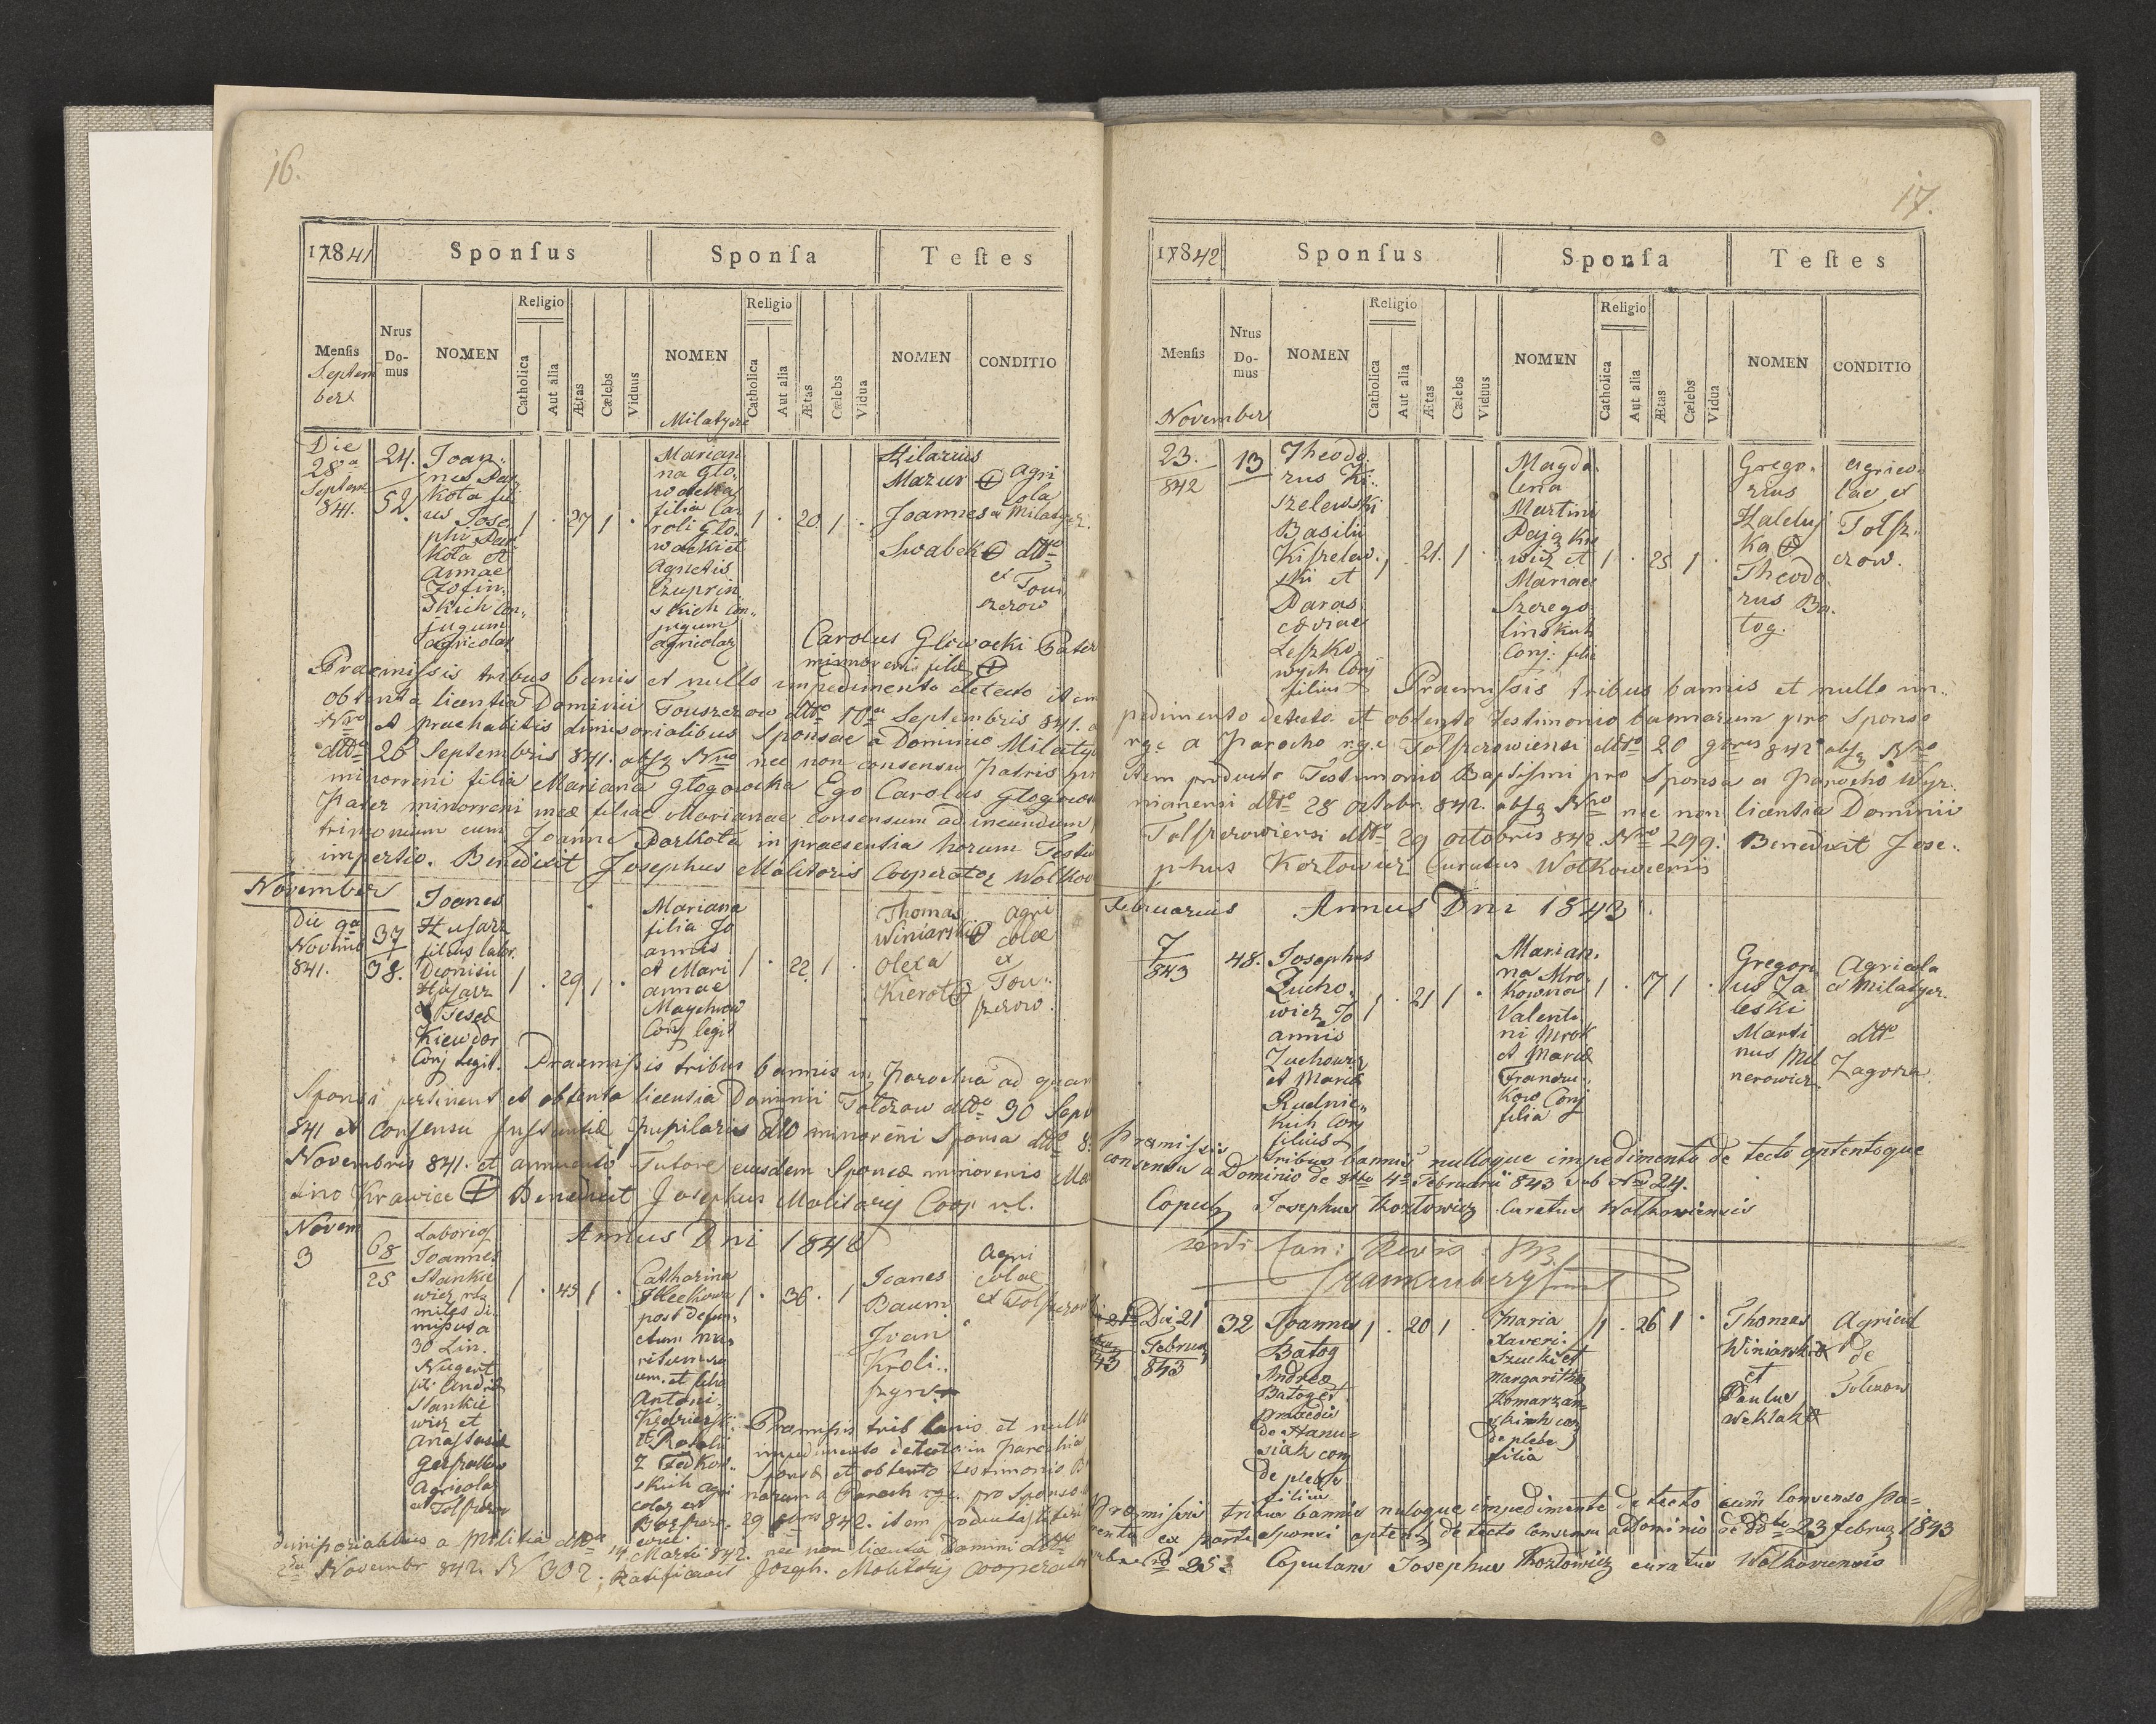 16.
17841 Sponſus Sponſa Teſtes
Menſis Septem bers
Nrus Do- mus
NOMEN
Religio
Catholica
Aut alia
Ætas
Cælebs
Viduus
NOMEN
Milatyce
Religio
Catholica
Aut alia
Ætas
Cælebs
Vidua
NOMEN
CONDITIO
Die
28va
Septem
841.
24.
52
Joan„
nes Par
kota fili
us Jose
phi Par
kota et
Annae
Zofin„
skich Con„
jugum
agricolar
1 . 27 1 .
Marian
na Glo„
wacka
filia Ca
roli Glo„
wacki et
Agnetis
Czuprin
skich Con„
jugum
agricolar
1 . 20 1 .
Hilarius
Mazur + agri
cola
Joannes a Milatyn.
Swabek + dtto
et Tou
szczow
Carolus Glowacki Pater
minorreni filiae +
Praemissis tribus banis et nullo impedimento detecto item
obtenta licentia Dominii Touszczow dtto 17a Septembris 841. a
Nro et praehabitis dimisorialibus Sponsae a Dominio Milatyn
dtto 26 Septembris 841. absq Nro nec non consensu Patris pro
minorreni filia Mariana Glogowcka Ego Carolus Glogows
Pater minorreni meae filiae Marianae Consensum ad ineundum
trimonium cum Joanne Parkota in praesentia horum Testiu
impertio. Benedixit Josephus Molitoris Cooperator Wolkow
November
Die 9a
Novemb
841.
37
38.
Joanes
Husarz
filius labr.
Dionisii
Husarz
et Tesed
Kiewdor
Conj legit.
1 . 29 1 .
Mariana
filia Jo
annis
et Mari
annae
Maychrow
Conj legit
1 . 22 1 .
Thomas
Winiarski +
Olexa
Kierot +
agri
colae
ex
Tou„
szczow.
Praemissis tribus bannis in Parochia ad quam
Sponsi pertinent et obtenta licentia Dominii Tolczow dtto 30 Sept
841 et Consensu Justantiae pupilaris dtto minoreni Sponsa dtto 8.
Novembris 841. et annuento Tutore eiusdem Sponsae minorenis Ma
tino Krawiec + Benedixit Josephus Molitorij Coop r.l.
Annus Dni 1842
Novem
3
68
25
Laborio
Joannes
Stankie
wicz
miles di
missus a
30 Lin.
Nugent
fil: Andr
Stankie
wicz et
Anastasiae
Agricolar
et Tolszczow
1 . 45 1 .
Catharina
post defun„
ctum ma
ritum
um. et filia
Antoni
Kędzierski
et Rosalii
z Fedkow„
skich agri
colar ex
1 . 36 . 1
Joanes
Baum
Jvan
Kroli„
szyn +
Agri
colae
ex Tolszczow
Premissis trib banis et nullo
impedimento detecto in Parochia
sponsae et obtento testimonio B
norum a Paroch rgc. pro Sponso
29 8bris 842. item productis literis
dimisorialibus a Militia dtto 14 Marti 842. nec non licentia Domini dtto
2da Novembr 842. N 302. Ratificavit Joseph. Molitorij Cooperator
17.
17842 Sponſus Sponſa Teſtes
Menſis
November
Nrus Do- mus
NOMEN
Religio
Catholica
Aut alia
Ætas
Cælebs
Viduus
NOMEN
Religio
Catholica
Aut alia
Ætas
Cælebs
Vidua
NOMEN
CONDITIO
23.
842
13
Theodo
rus Ki„
szelewski
Basilii
Kiszelew„
ski et
Paras
coviae
Leszko
wych Conj
filius
1 . 21. 1 .
Magda
lena
Martini
Pająkie
wicz et
Mariae
Szczego
linskich
Conj: filia
1 . 25 1 .
Grego„
rius
Haleluj
ka +
Theodo
rus Ba
tog.
agrico
lae ex
Tolsz„
czow.
Praemissis tribus bannis et nullo im„
pedimento detecto et obtento testimonio bannorum pro Sponso
rgc a Parocho rgc Tolszczowiensi dtto 20 9bris 842 absq Nro
item producto Testimonio Baptismi pro Sponsa a Parocho Wyz„
nianensi dtto 28 octobr. 842. absq Nro nec non licentia Dominii
Tolszczowiensi dtto 29 octobris 842. Nro 299. Benedixit Jose„
phus Kozlowicz Curatus Wolkowiensis
Februarius Annus Dni 1843.
7
843
48.
Josephus
Zucho„
wicz Jo
annis
Zuchowicz
et Mariae
Rudnic„
kich Conj
filius
1 . 21 1 .
Marian„
na Mro„
kowna
Valenti
ni Mrok
et Mariae
Francisz„
kow Conj
filia
1 . 17 1 .
Gregori
us Za
leski
Marti
nus Mel
nerowicz
Agricola
a Milatyn.
dtto
Zagora
Premissis tribus bannis nulloque impedimento detecto optentoque
consensu a Dominio de dtto 4ta Februarii 843 sub Nro 24.
Copul Josephus Kozlowicz Curatus Wolkowiensis
vidi Can: Revis:
Frankenberg
Die 21
Februa
843
32
Joannes
Batog
Andreae
Batog et
Praxedis
de Hanu=
siak conj
de plebe
filius
1 . 20 1 .
Maria
Xaveri
Szucki et
Margaritha
Komarzan=
skich conj
de plebe
filia
1 . 26 1 .
Thomas
Winiarski +
et
Paulus
Weklak +
Agricol
de
Tolczow
Premissis tribus bannis nuloque impedimento detecto cum Consenso Pa=
rentu ex parte Sponsi optento detecto Consensu a Dominio de ddto 23 februa 1843
sub Nro 25. Copulans Josephus Kozlowicz curatus Wolkowiensis